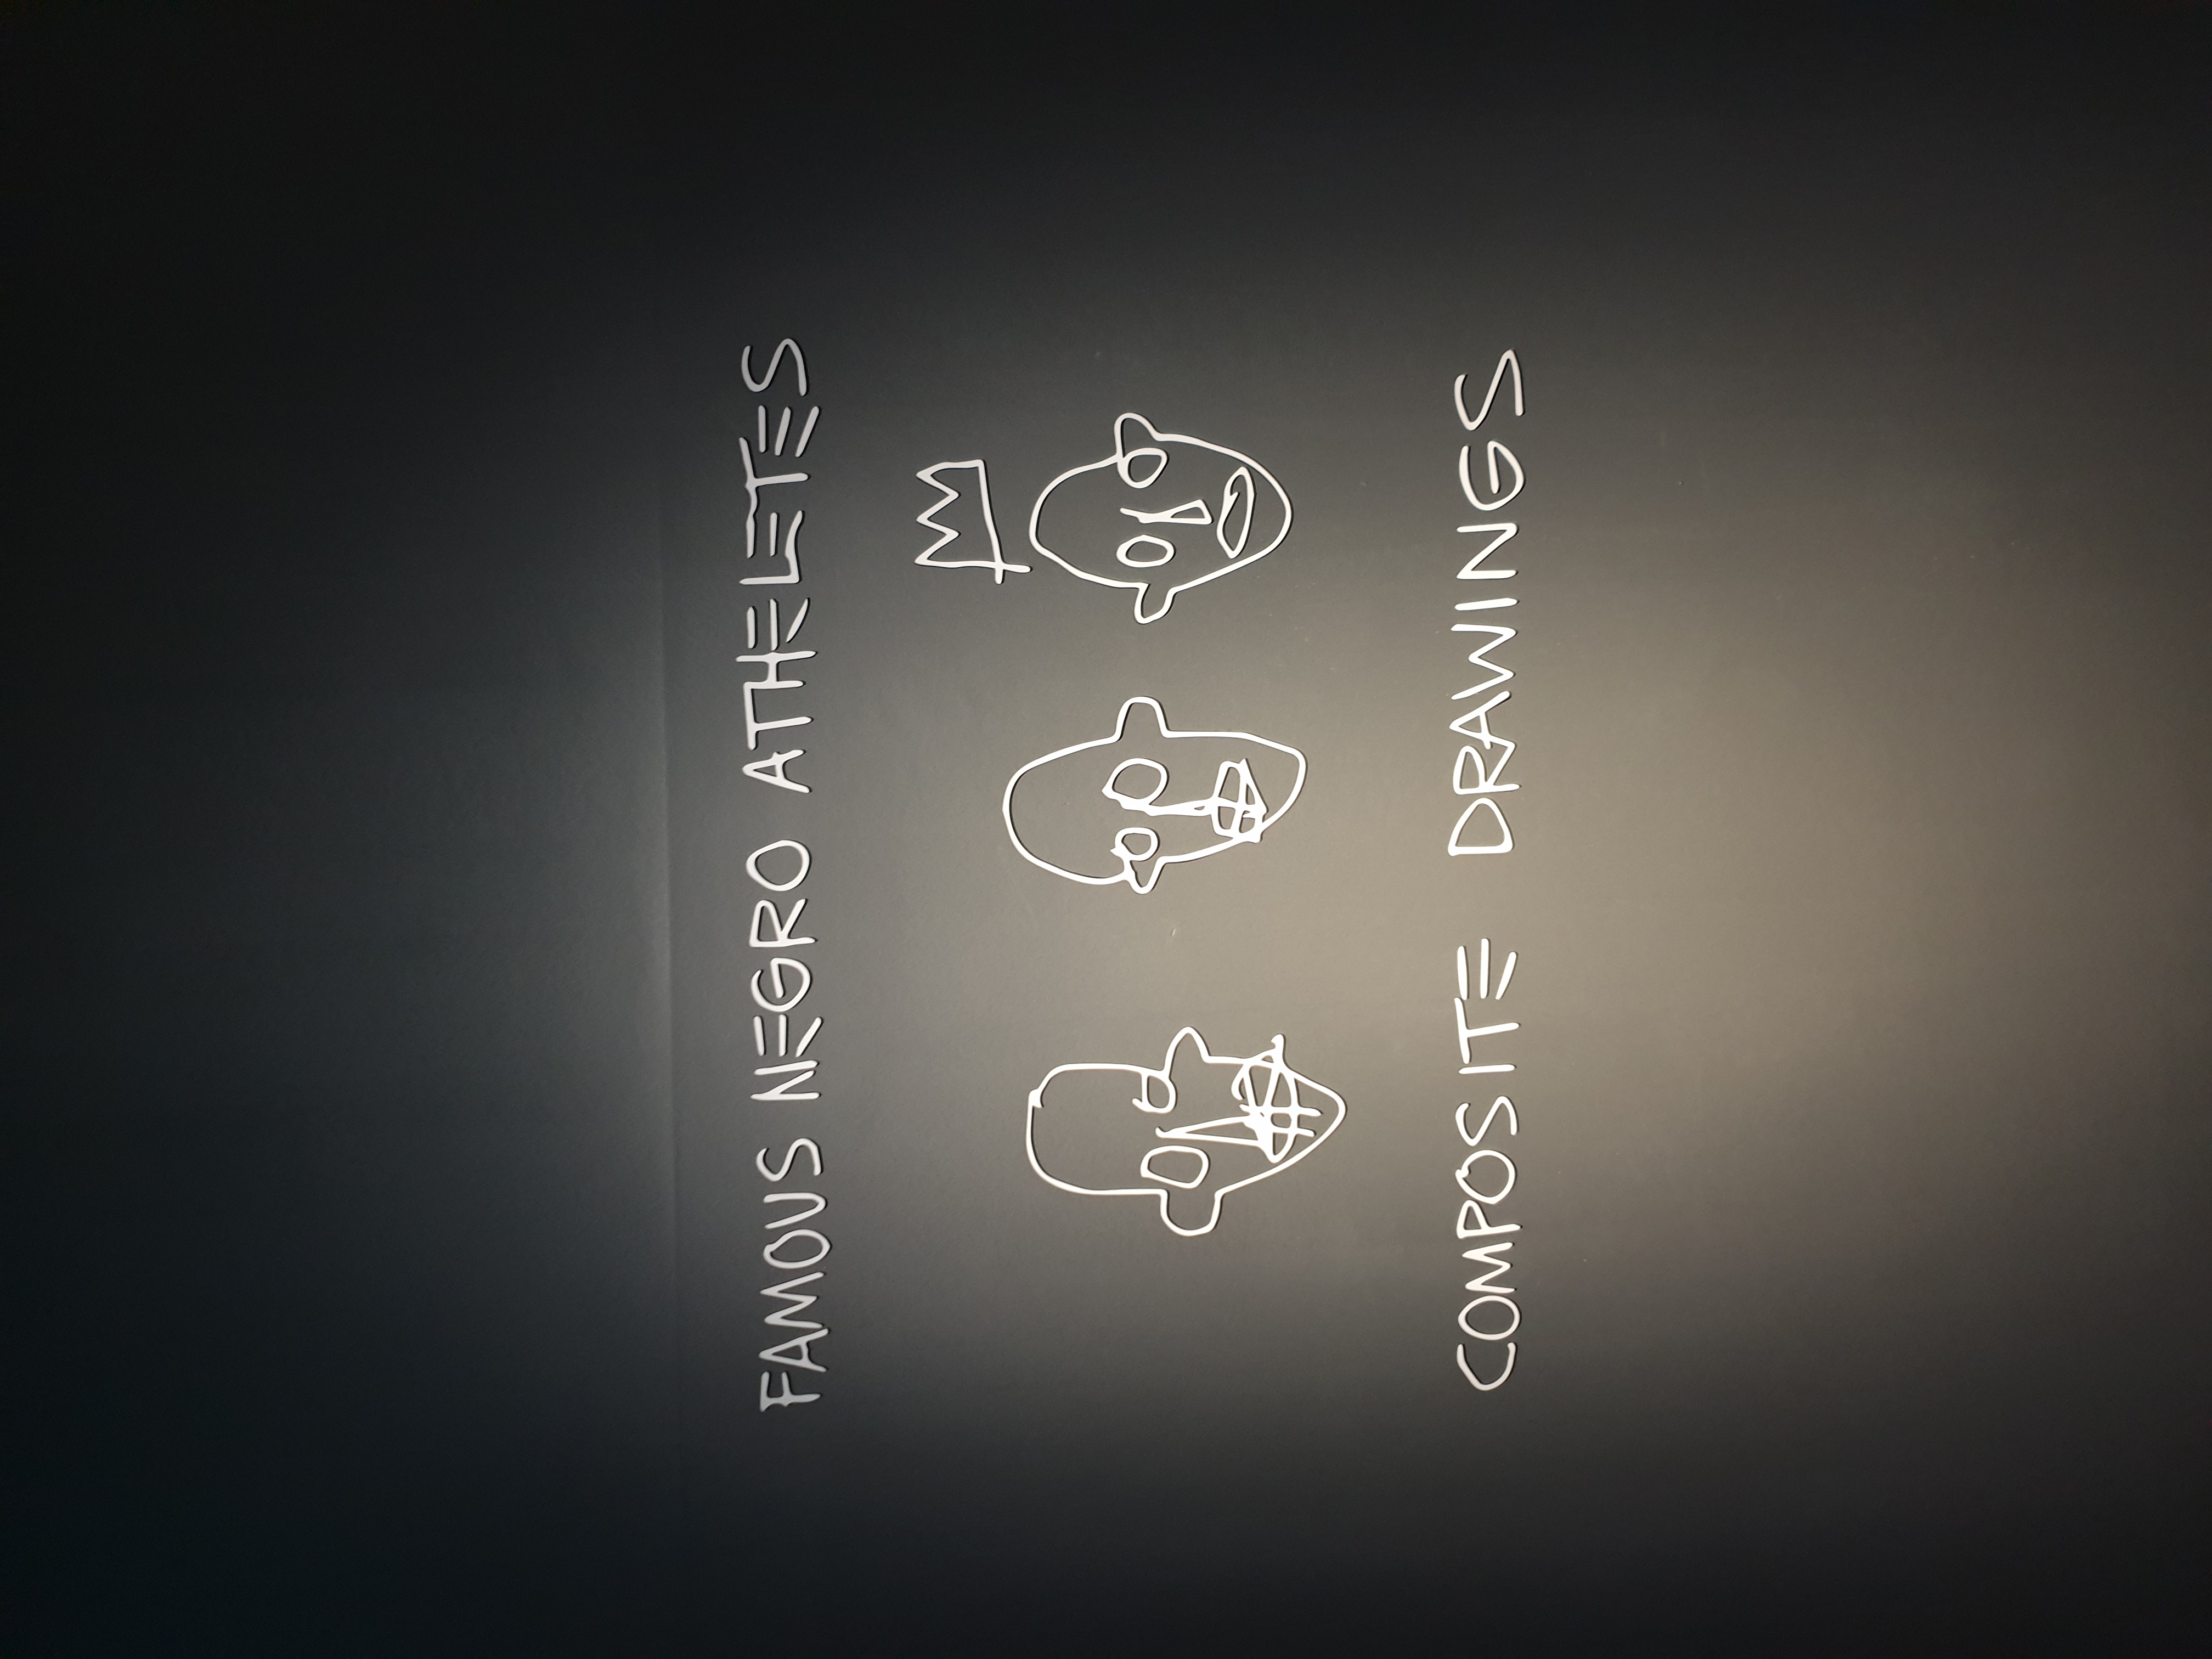 FAMOUS NEGRO ATHELETES
COMPOSITE DRAWINGS